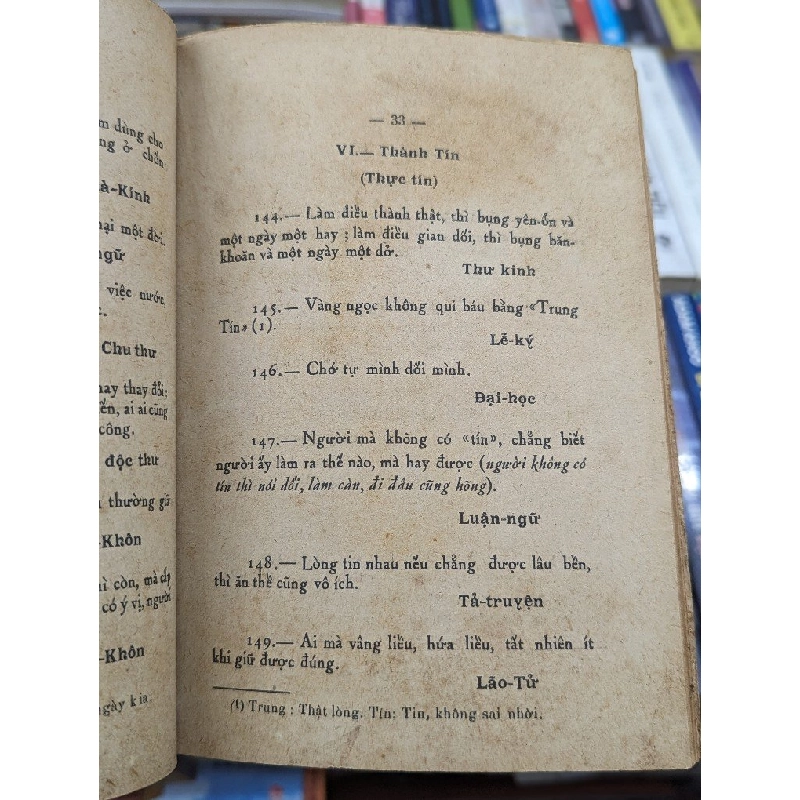 m dùng cho
ng ở chốn
à-Kính
nại một đời.
ngữ
việc nước,
c.
Chu thư
hay thay đổi;
ển, ai ai cũng
công.
độc thư
thường giả
-Khôn
ì còn, mà cấp
có ý vị, người
-Khôn
ngày kia.
— 33 —
VI.— Thành Tín
(Thực tín)
144.— Làm điều thành thật, thì bụng yên-ổn và
một ngày một hay ; làm điều gian dối, thì bụng băn-
khoăn và một ngày một dở.
Thư kinh
145.— Vàng ngọc không qui báu bằng «Trung
Tín» (1).
Lễ-ký
146.— Chớ tự mình dối mình.
Đại-học
147.— Người mà không có «tín», chẳng biết
người ấy làm ra thế nào, mà hay được (người không có
tín thì nói dối, làm càn, đi đâu cũng hỏng).
Luận-ngữ
148.— Lòng tin nhau nếu chẳng được lâu bền,
thì ăn thề cũng vô ích.
Tả-truyện
149.— Ai mà vâng liều, hứa liều, tất nhiên ít
khi giữ được đúng.
Lão-Tử
(1) Trung : Thật lòng. Tín: Tin, không sai nhời.